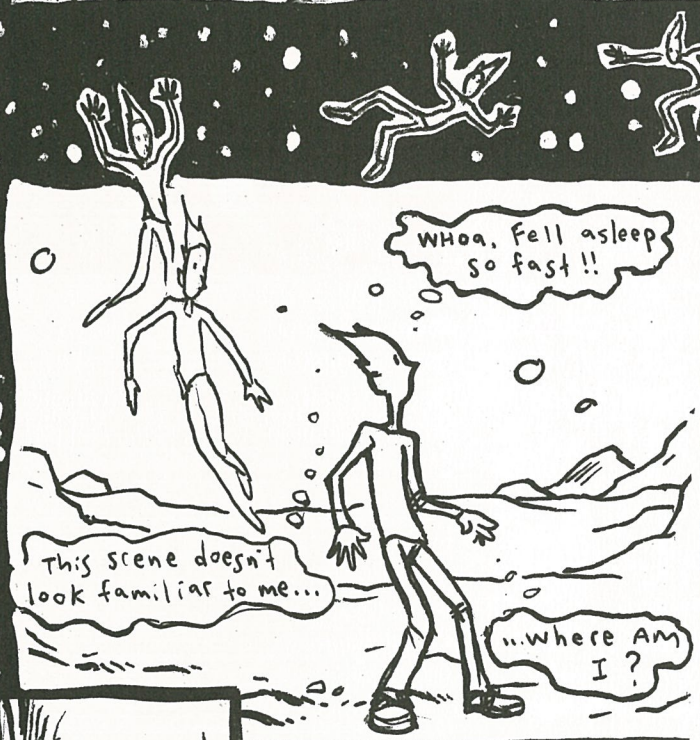 WHoa, Fell asleep
so fast!!
This scene doesn't
look familiar to me...
...where Am
I?